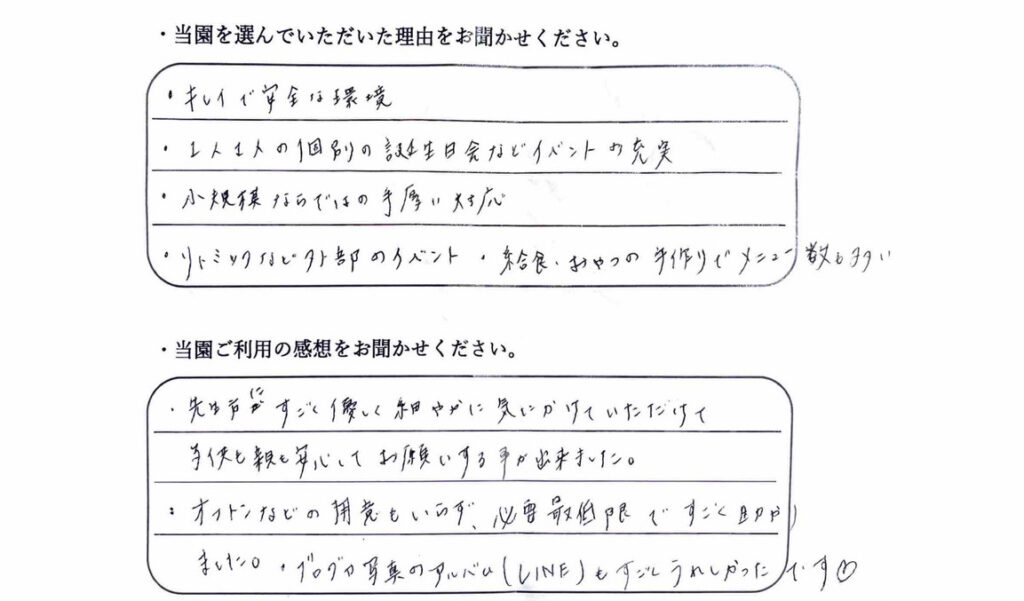 ・当園を選んでいただいた理由をお聞かせください。
・キレイで安全な環境
・1人1人の個別の誕生日会などイベントの充実
・小規模ならではの手厚い対応
・リトミックなど外部のイベント ・給食、おやつの手作りでメニュー数も多い
・当園ご利用の感想をお聞かせください。
・先生方にがすごく優しく細やかに気にかけていただけて
子供も親も安心してお願いする事が出来ました。
・オフトンなどの用意もいらず、必要最低限ですごく助かり
ました。・ブログや写真のアルバム(LINE)もすごくうれしかったです